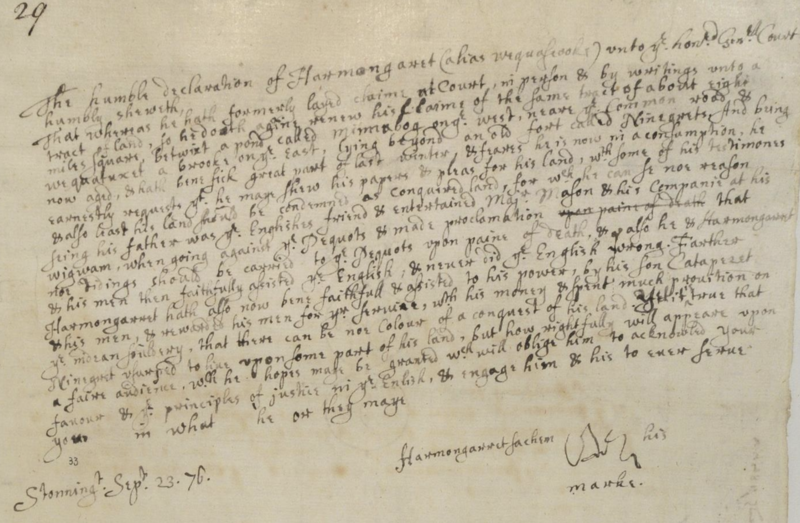 29
The humble declaration of Harmongaret (alias wequascooke) unto ye. honrd. Genrll Court
humbly sheweth,
That whereas he hath formerly layed claime at Court, in person & by writings unto a
tract of land, so he doth againe renew his Claime of the same tract of about eight
miles square, betwixt a pond called minnabog on ye. west, neare ye. Common road, &
wequatuxet a brooke, on ye. East, lying beyond an old fort called Ninegrets, And being
now aged, & hath bene sick great part of last winter, & feares he is now in a consumption, he
earnestly requests yt. he may shew his papers & pleas for his land, wth some of his testimones
& also least his land should be condemned as conquered land, for wch he can se noe reason
seing his father was ye. Englishes friend & entertained Majr. Mason & his Companie at his
wigwam, when going against ye. Pequots & made proclamation upon paine of death that
noe tidings should be carried to ye. Pequots upon paine of death, & also he & Harmongarret
& his men then faithfully asisted ye. English, & never did ye. English wrong. Farther
Harmongarret hath also now bene faithfull & asisted to his power, by his son Cataperet
& his men, & rewards his men for yr. service, wth his money & spent much provition on
ye. moran souldery, that there can be noe colour of a conquest of his land. Yet it true that
Ninegret usurped to live upon some part of his land, but how rightfully will appeare upon
a faire audience, wch he hopes may be granted wch will oblige him to acknowled your
favour & ye. principles of justice in ye. Enlish, & engage him & his to ever serve
you in what he or they maye
33
Stonningt. Sept. 23. 76.
Harmongarret sachem his
marke.